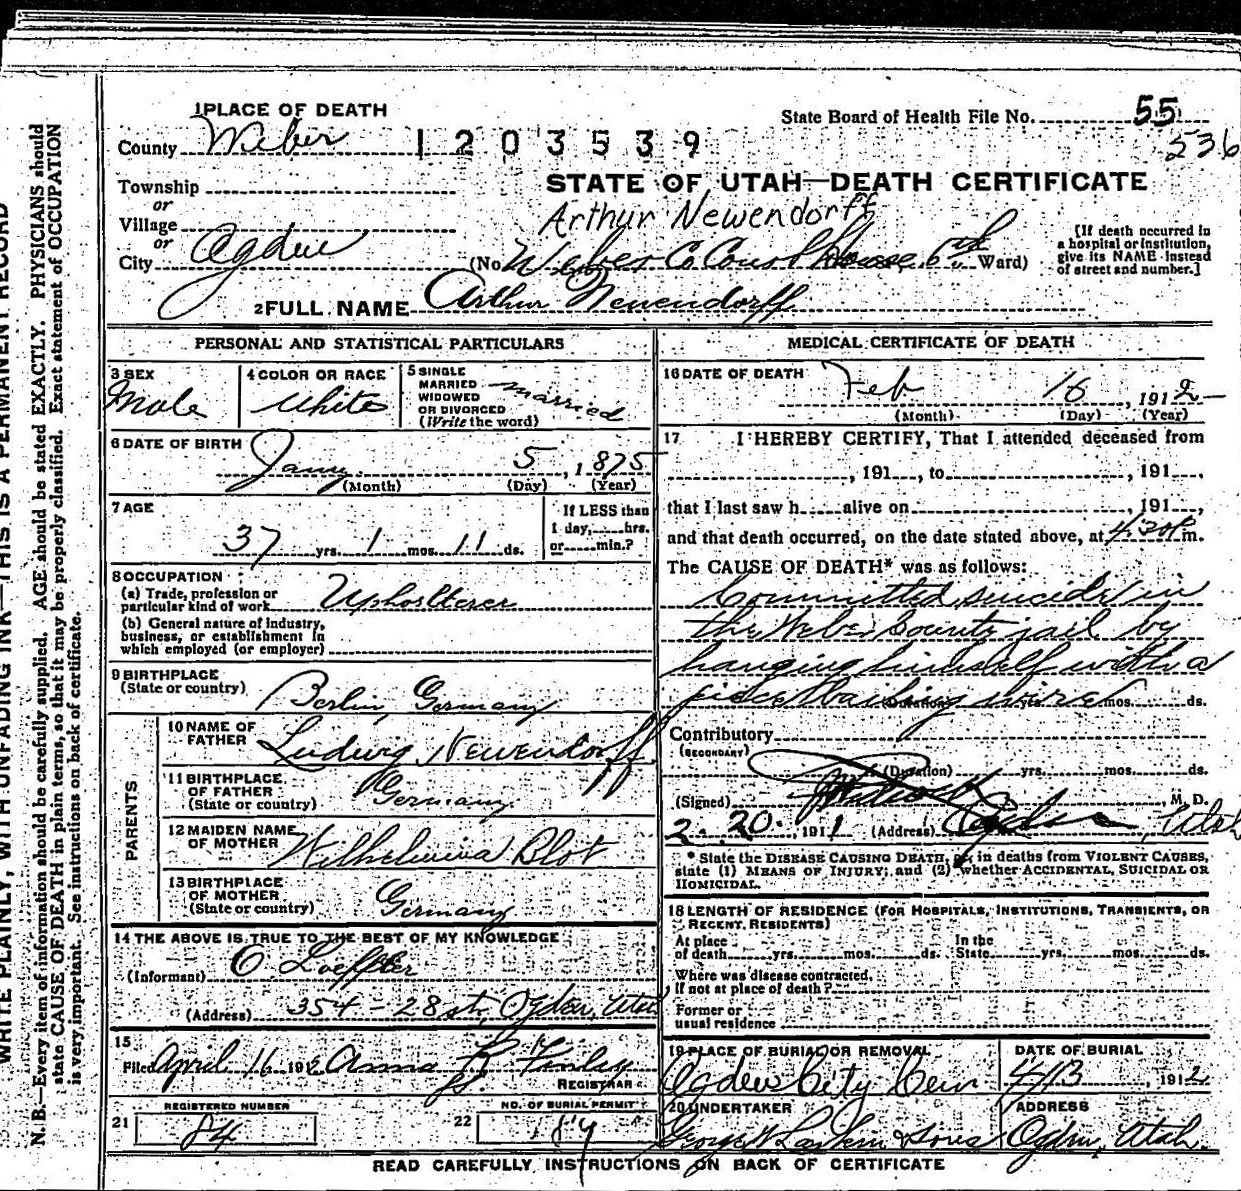 1 PLACE OF DEATH
State Board of Health File No. 55
536
County Weber 1203539
STATE OF UTAH—DEATH CERTIFICATE
Township
or
Village
or
City Ogden
Arthur Newendorff
(No. Weber Co Court House 6th Ward)
[If death occurred in
a hospital or institution,
give its NAME instead
of street and number.]
2 FULL NAME Arthur Neuendorff
PERSONAL AND STATISTICAL PARTICULARS
3 SEX
Male
4 COLOR OR RACE
White
5 SINGLE
MARRIED
WIDOWED
OR DIVORCED
(Write the word)
married
6 DATE OF BIRTH
Jany 5, 1875
(Month) (Day) (Year)
7 AGE
37 yrs. 1 mos. 11 ds.
If LESS than
1 day, hrs.
or min.?
8 OCCUPATION
(a) Trade, profession or
particular kind of work Upholsterer
(b) General nature of industry,
business, or establishment in
which employed (or employer)
9 BIRTHPLACE
(State or country) Berlin, Germany
PARENTS
10 NAME OF
FATHER Ludwig Newendorff
11 BIRTHPLACE
OF FATHER
(State or country) Germany
12 MAIDEN NAME
OF MOTHER Wilhelmina Blot
13 BIRTHPLACE
OF MOTHER
(State or country) Germany
14 THE ABOVE IS TRUE TO THE BEST OF MY KNOWLEDGE
(Informant) O Loeffler
(Address) 354 - 28 st, Ogden, Utah
15
Filed April 16 1912 Anna R. Finley
REGISTRAR
21 REGISTERED NUMBER
84
22 NO. OF BURIAL PERMIT
184
MEDICAL CERTIFICATE OF DEATH
16 DATE OF DEATH
Feb 16, 1912
(Month) (Day) (Year)
17 I HEREBY CERTIFY, That I attended deceased from
, 191 , to , 191 ,
that I last saw h alive on , 191 ,
and that death occurred, on the date stated above, at 4.30 P m.
The CAUSE OF DEATH* was as follows:
Committed suicide in
the Weber County jail by
hanging himself with a
piece bailing wire
(Duration) yrs. mos. ds.
Contributory
(SECONDARY)
(Duration) yrs. mos. ds.
(Signed) , M. D.
2. 20. , 1911 (Address) Ogden, Utah
* State the DISEASE CAUSING DEATH, or, in deaths from VIOLENT CAUSES,
state (1) MEANS OF INJURY; and (2) whether ACCIDENTAL, SUICIDAL OR
HOMICIDAL.
18 LENGTH OF RESIDENCE (FOR HOSPITALS, INSTITUTIONS, TRANSIENTS, OR
RECENT RESIDENTS)
At place
of death yrs. mos. ds.
In the
State yrs. mos. ds.
Where was disease contracted,
if not at place of death?
Former or
usual residence
19 PLACE OF BURIAL OR REMOVAL
Ogden City Cem
DATE OF BURIAL
4/13, 1912
20 UNDERTAKER
George W Larkin & Sons
ADDRESS
Ogden, Utah.
READ CAREFULLY INSTRUCTIONS ON BACK OF CERTIFICATE
WRITE PLAINLY, WITH UNFADING INK—THIS IS A PERMANENT RECORD
N. B.—Every item of information should be carefully supplied. AGE should be stated EXACTLY. PHYSICIANS should
state CAUSE OF DEATH in plain terms, so that it may be properly classified. Exact statement of OCCUPATION
is very important. See instructions on back of certificate.